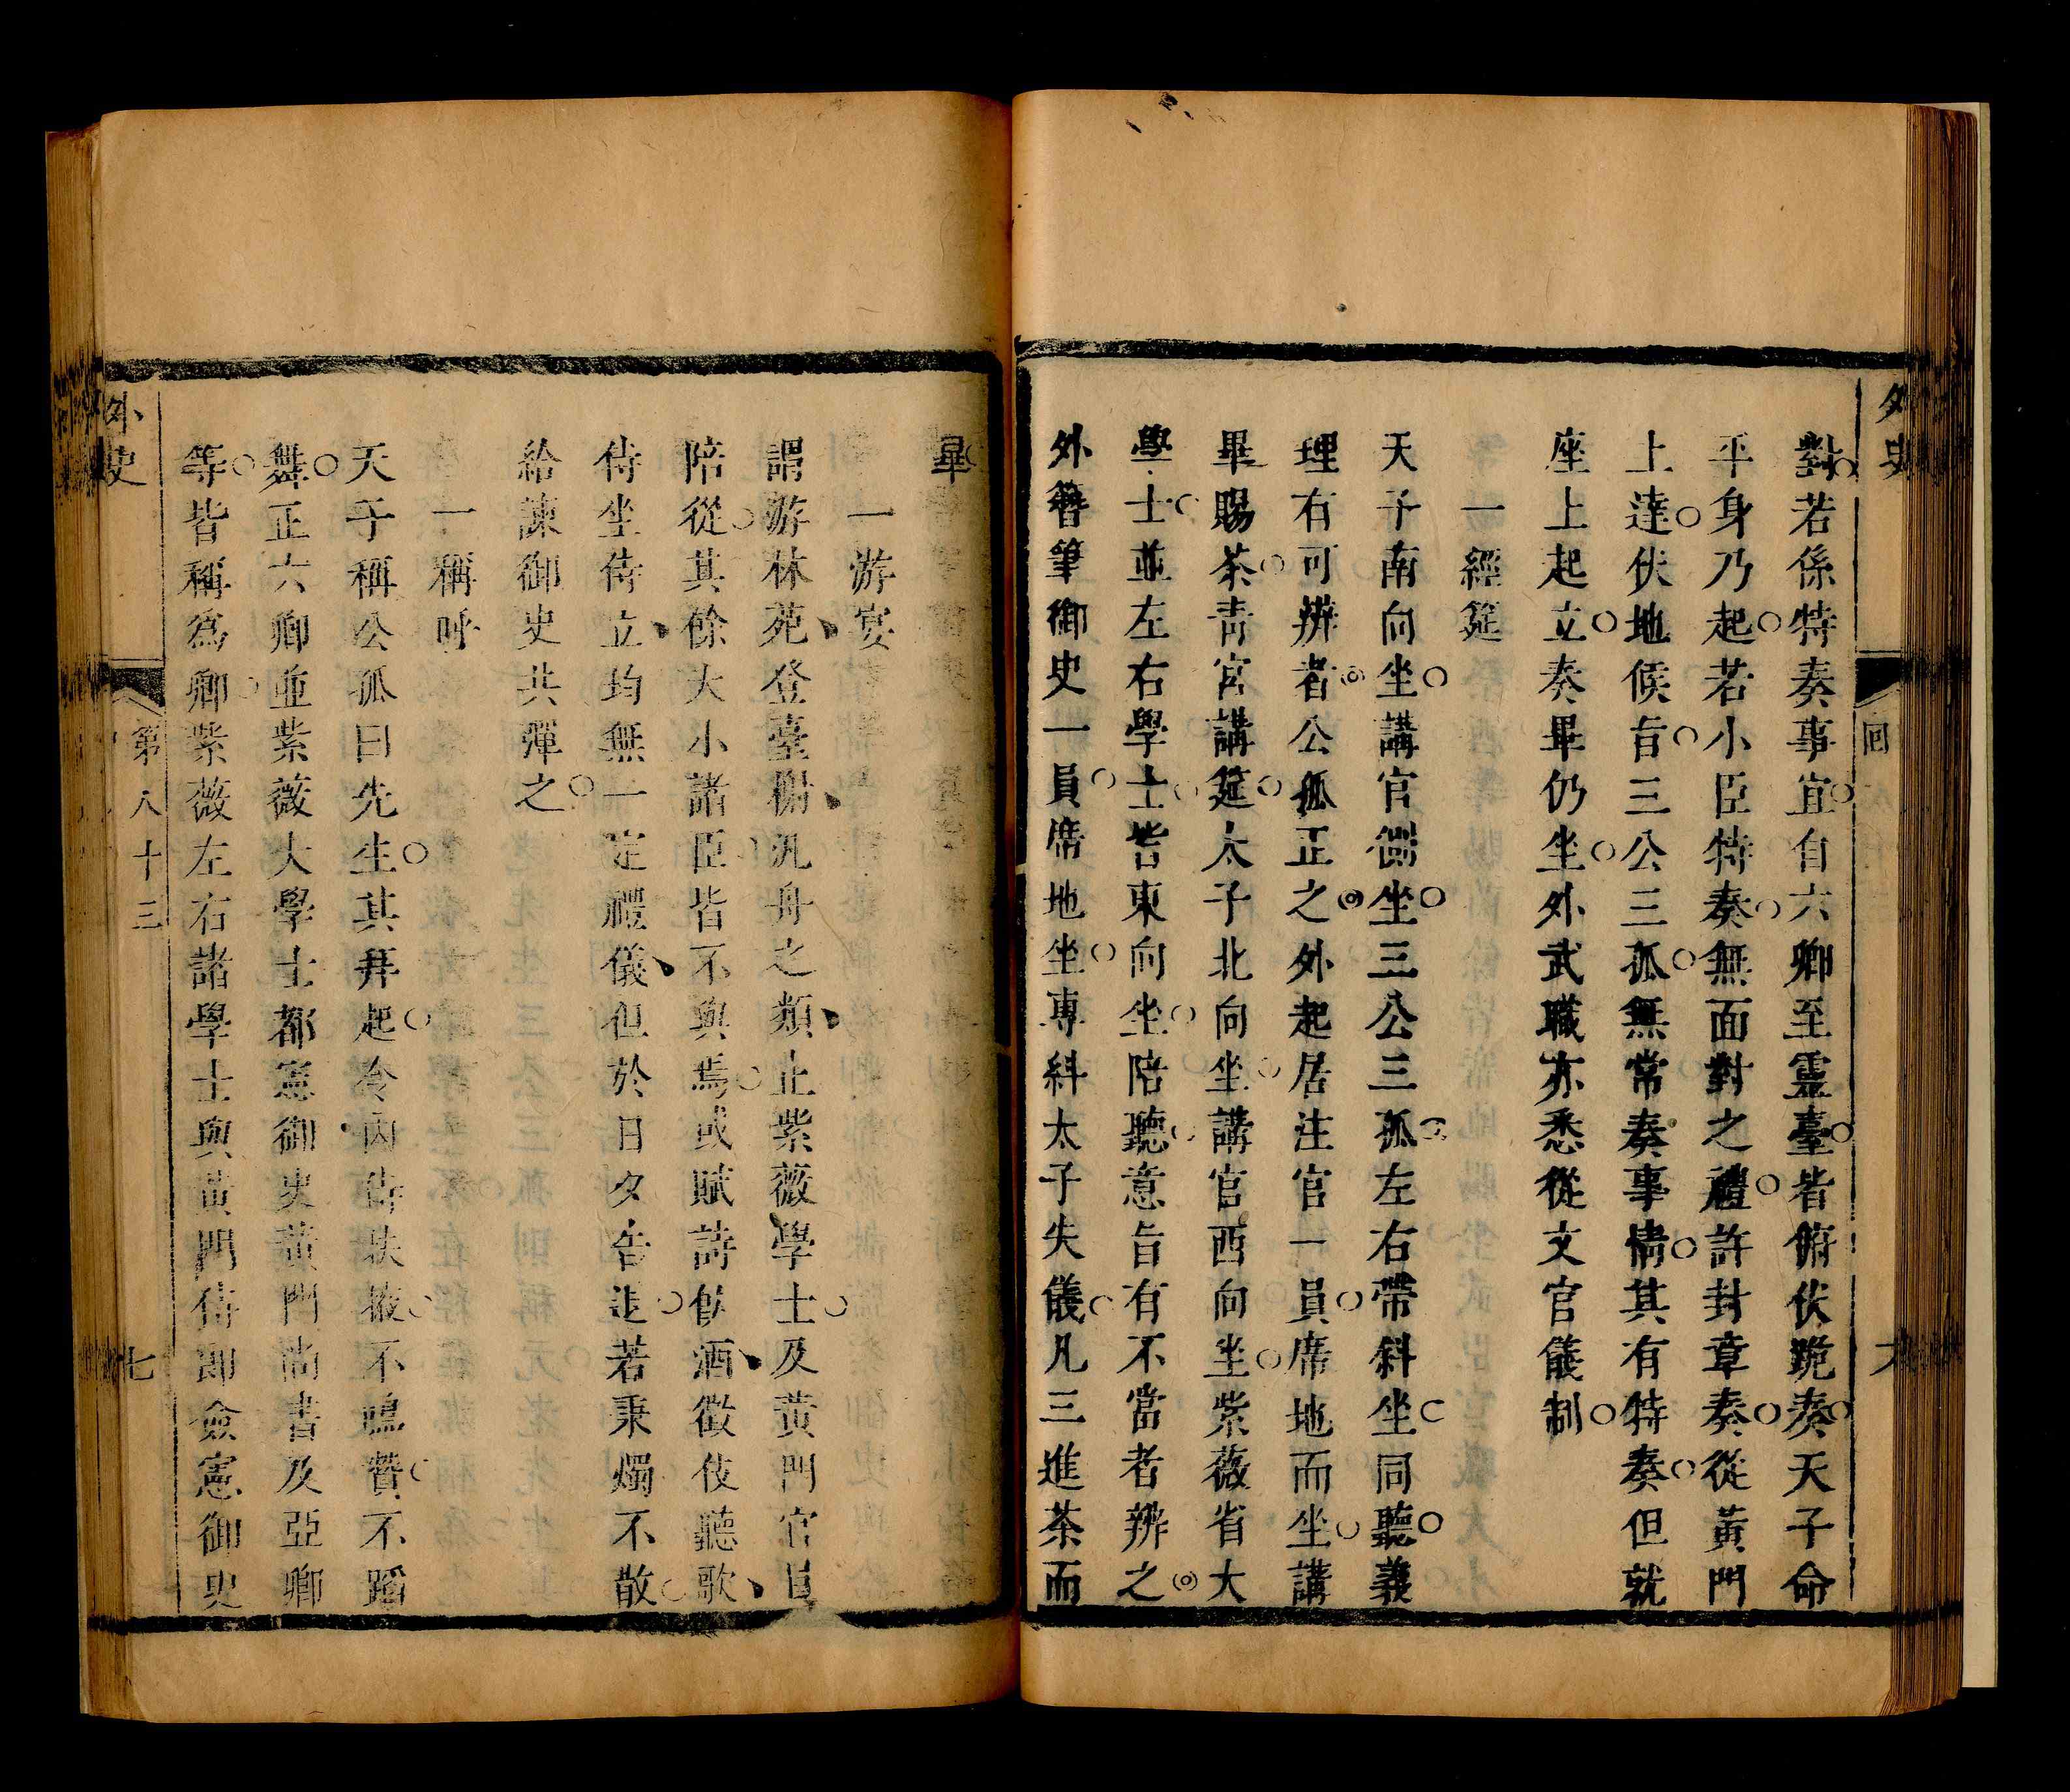 外史
回
六
對若係特奏事宜自六卿至靈臺皆俯伏跪奏天子命
平身乃起若小臣特奏無面對之禮許封章奏從黃門
上達伏地候旨三公三孤無常奏事情其有特奏但就
座上起立奏畢仍坐外武職亦悉從文官儀制
一經筵
天子南向坐講官側坐三公三孤左右帶斜坐同聽義
理有可辨者公孤正之外起居注官一員席地而坐講
畢賜茶青宮講筵太子北向坐講官西向坐紫薇省大
學士並左右學士皆東向坐陪聽意旨有不當者辨之
外簪筆御史一員席地坐專糾太子失儀凡三進茶而
畢
一游宴
謂游林苑登臺榭汎舟之類止紫薇學士及黃門官員
陪從其餘大小諸臣皆不與焉或賦詩飲酒徵伎聽歌
侍坐侍立均無一定禮儀但於日夕告退若秉燭不散
給諫御史共彈之
一稱呼
天子稱公孤曰先生其拜起令內侍扶掖不鳴贊不蹈
舞正六卿並紫薇大學士都憲御史黃門尚書及亞卿
等皆稱為卿紫薇左右諸學士與黃門侍郎僉憲御史
外史
第八十三
七